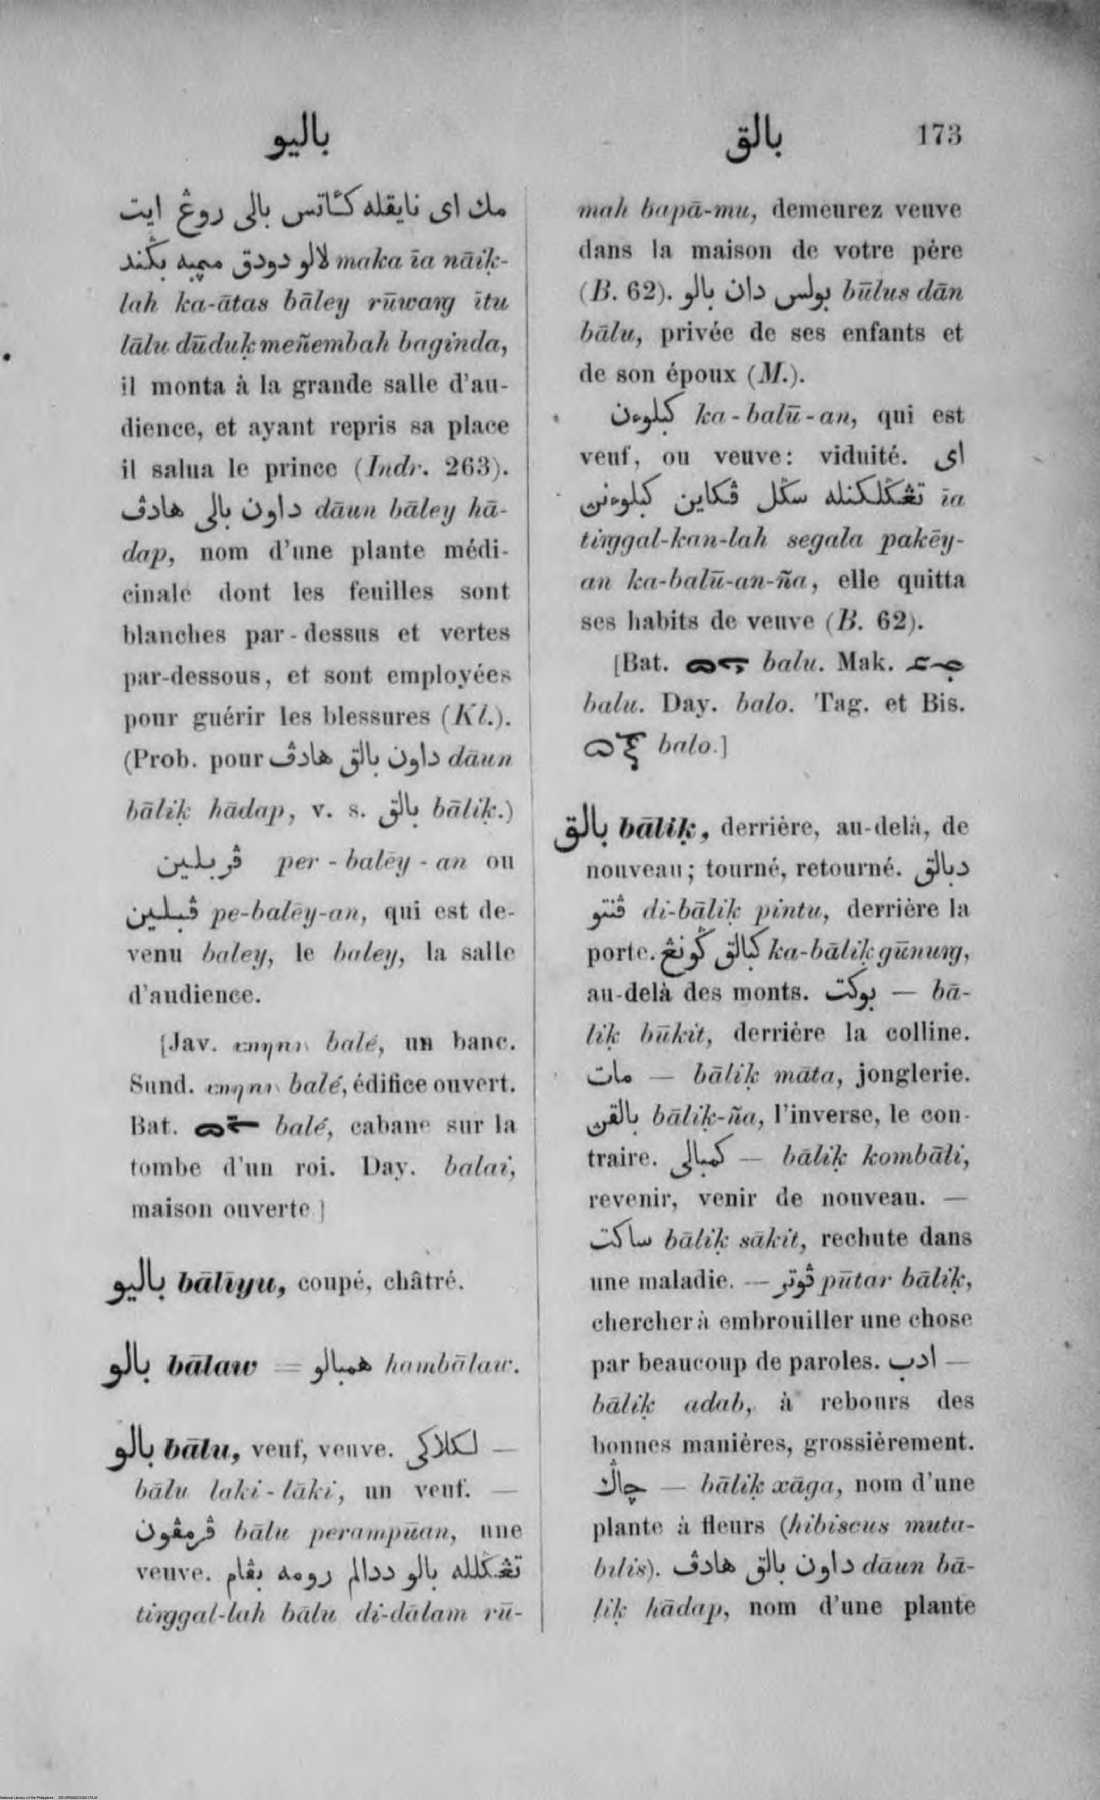 باليو
بالق 173
مك اى نايقله كئاتس بالى روڠ ايت
لالو دودق مپمبه بڬند maka īa nāiḳ-
lah ka-ātas bāley rūwaṅg ītu
lālu dūduḳ meñembah baginda,
il monta à la grande salle d'au-
dience, et ayant repris sa place
il salua le prince (Indr. 263).
داون بالى هادڤ dāun bāley hā-
dap, nom d'une plante médi-
cinale dont les feuilles sont
blanches par-dessus et vertes
par-dessous, et sont employées
pour guérir les blessures (Kl.).
(Prob. pour داون بالق هادڤ dāun
bāliḳ hādap, v. s. بالق bāliḳ.)
ڤربلين per-balēy-an ou
ڤبلين pe-balēy-an, qui est de-
venu baley, le baley, la salle
d'audience.
[Jav. balé, un banc.
Sund. balé, édifice ouvert.
Bat. balé, cabane sur la
tombe d'un roi. Day. balai,
maison ouverte]
باليو bālīyu, coupé, châtré.
بالو bālaw = همبالو hambālaw.
بالو bālu, veuf, veuve. لكلاكى —
bālu laki-lāki, un veuf. —
ڤرمڤون bālu perampūan, une
veuve. تڠڬلله بالو ددالم رومه بڤام
tiṅggal-lah bālu di-dālam rū-
mah bapā-mu, demeurez veuve
dans la maison de votre père
(B. 62). بولس دان بالو būlus dān
bālu, privée de ses enfants et
de son époux (M.).
كبلوءن ka-balū-an, qui est
veuf, ou veuve: viduité. اى
تڠڬلكنله سڬل ڤكاين كبلوءنن īa
tiṅggal-kan-lah segala pakēy-
an ka-balū-an-ña, elle quitta
ses habits de veuve (B. 62).
[Bat. balu. Mak.
balu. Day. balo. Tag. et Bis.
balo.]
بالق bāliḳ, derrière, au-delà, de
nouveau; tourné, retourné. دبالق
ڤنتو di-bāliḳ pintu, derrière la
porte. كبالق ڬونڠ ka-bāliḳ gūnuṅg,
au-delà des monts. بوكت — bā-
liḳ būkit, derrière la colline.
مات — bāliḳ māta, jonglerie.
بالقن bāliḳ-ña, l'inverse, le con-
traire. كمبالى — bāliḳ kombāli,
revenir, venir de nouveau. —
ساكت bāliḳ sākit, rechute dans
une maladie. — ڤوتر pūtar bāliḳ,
chercher à embrouiller une chose
par beaucoup de paroles. ادب —
bāliḳ adab, à rebours des
bonnes manières, grossièrement.
چاڬ — bāliḳ xāga, nom d'une
plante à fleurs (hibiscus muta-
bilis). داون بالق هادڤ dāun bā-
liḳ hādap, nom d'une plante